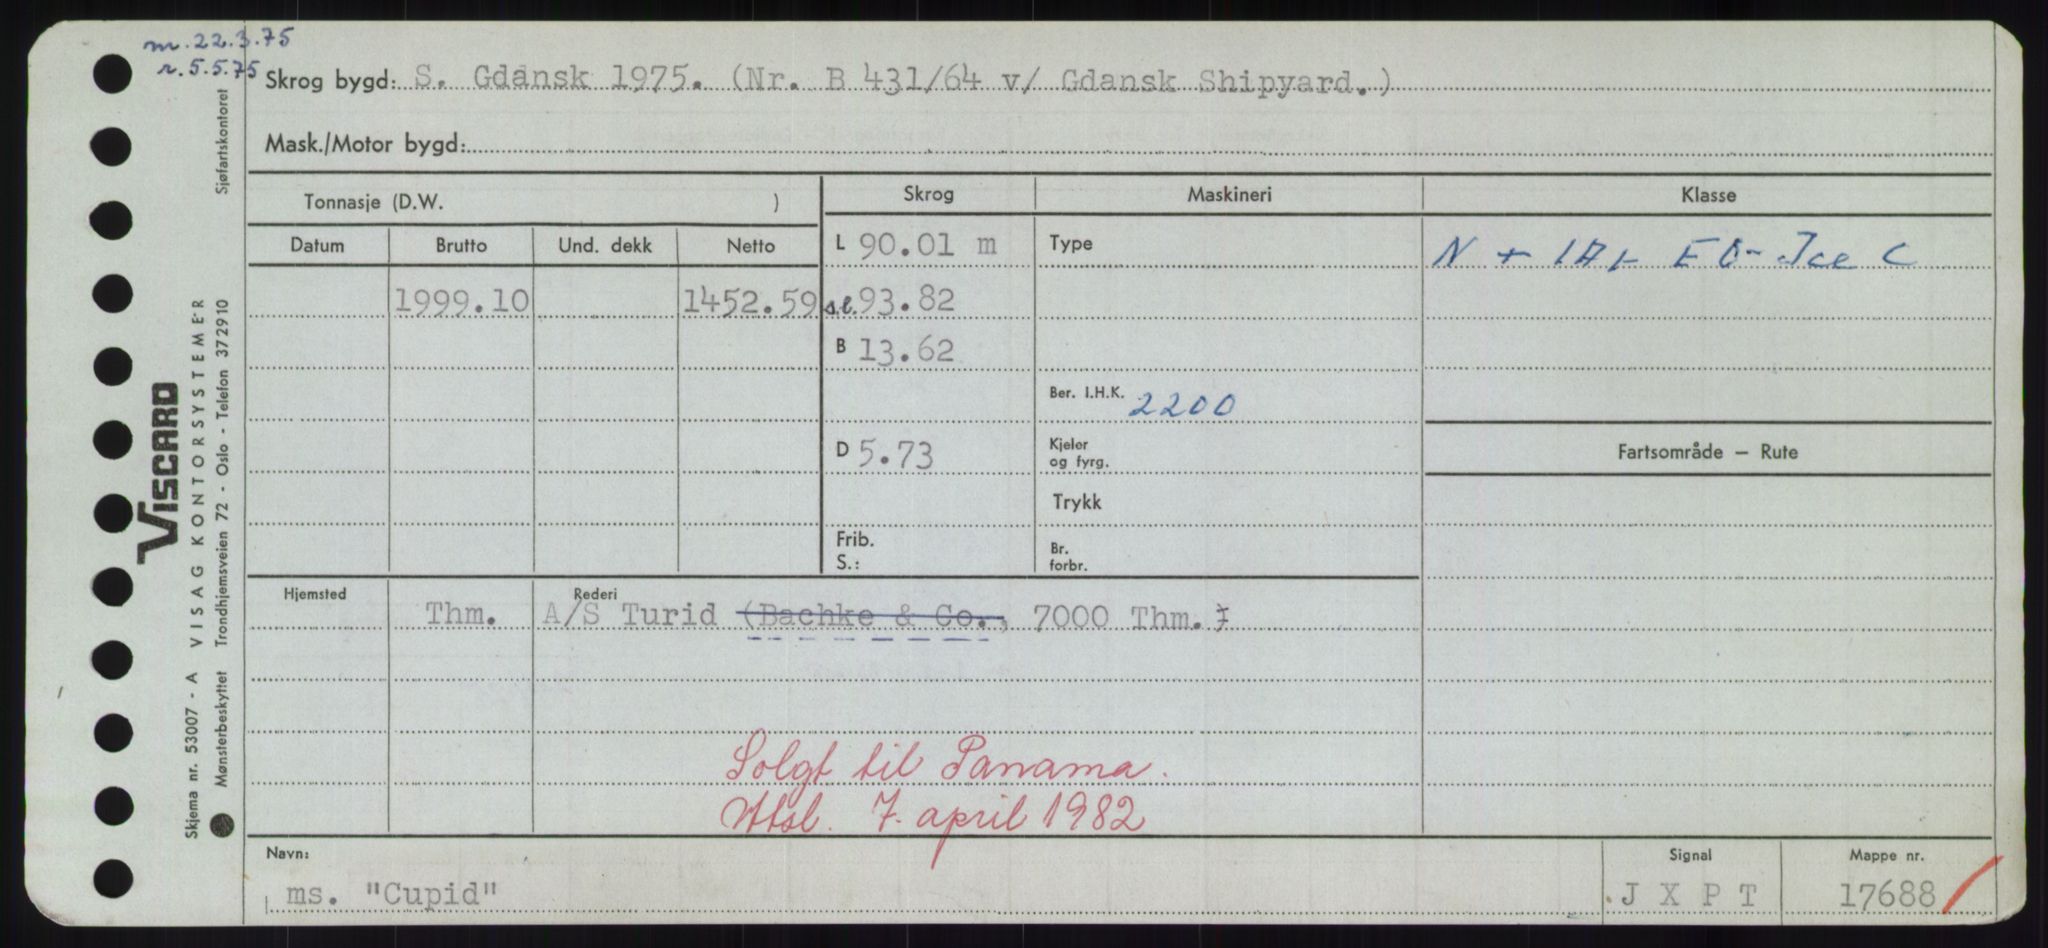 m. 22.3.75
r. 5.5.75
Skrog bygd: S. Gdansk 1975. (Nr. B 431/64 v/ Gdansk Shipyard.)
Mask./Motor bygd:
Tonnasje (D.W. )
Skrog
Maskineri
Klasse
Datum
Brutto
Und. dekk
Netto
L 90.01 m
Type
N + 1A1- E0-Ice C
1999.10
1452.59
s.l. 93.82
B 13.62
Ber. I.H.K. 2200
D 5.73
Kjeler
og fyrg.
Fartsområde — Rute
Trykk
Frib.
S.:
Br.
forbr.
Hjemsted
Rederi
Thm.
A/S Turid (Bachke & Co., 7000 Thm.)
Solgt til Panama.
Utsl. 7. april 1982
Navn:
ms. "Cupid"
Signal
J X P T
Mappe nr.
17688
VISCARD
Skjema nr. 53007 - A VISAG KONTORSYSTEMER
Mønsterbeskyttet Trondhjemsveien 72 - Oslo - Telefon 372910 Sjøfartskontoret